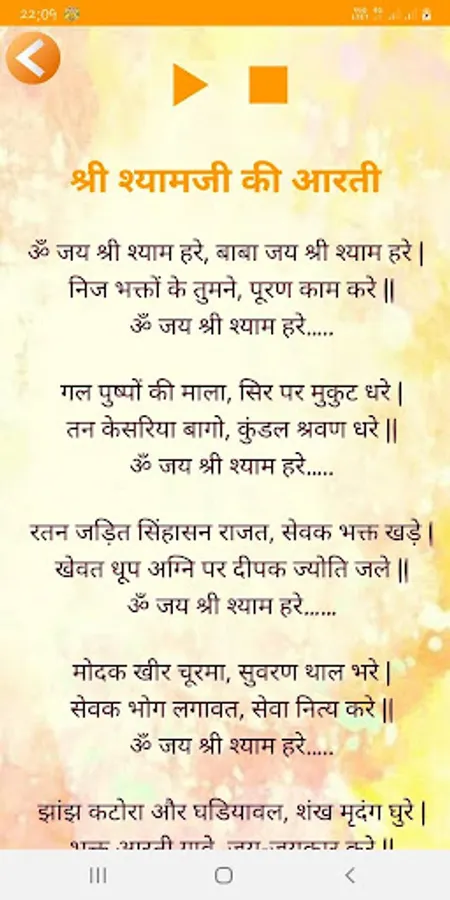 22:09
श्री श्यामजी की आरती
ॐ जय श्री श्याम हरे, बाबा जय श्री श्याम हरे |
निज भक्तों के तुमने, पूरण काम करे ||
ॐ जय श्री श्याम हरे.....
गल पुष्पों की माला, सिर पर मुकुट धरे |
तन केसरिया बागो, कुंडल श्रवण धरे ||
ॐ जय श्री श्याम हरे.....
रतन जड़ित सिंहासन राजत, सेवक भक्त खड़े |
खेवत धूप अग्नि पर दीपक ज्योति जले ||
ॐ जय श्री श्याम हरे......
मोदक खीर चूरमा, सुवरण थाल भरे |
सेवक भोग लगावत, सेवा नित्य करे ||
ॐ जय श्री श्याम हरे.....
झांझ कटोरा और घडियावल, शंख मृदंग घुरे |
भक्त आरती गावे, जय-जयकार करे ||